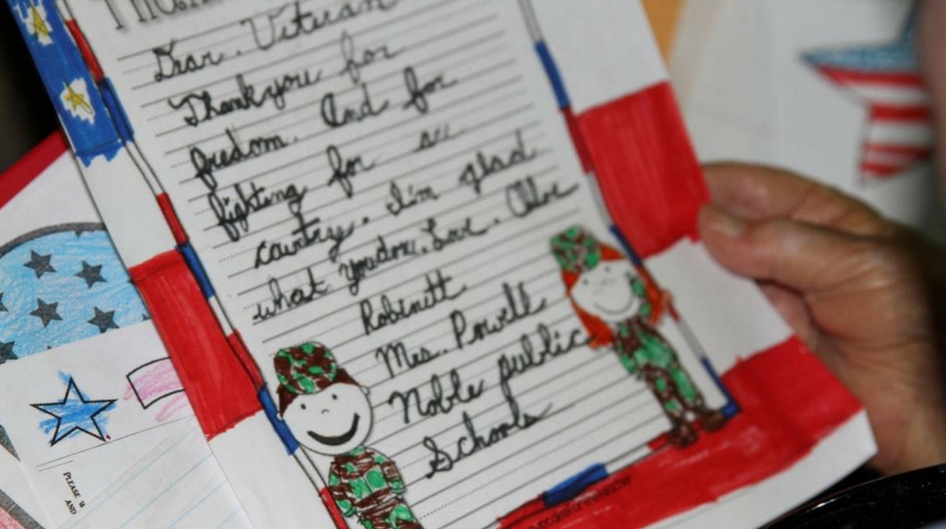 Dear. Veteran
Thankyou for
fredom. And for
fighting for are
country. I'm glad
what youdone. Love. Chloe
Robinett
Mrs. Powell
Noble public
Schools
PLEASE
AND